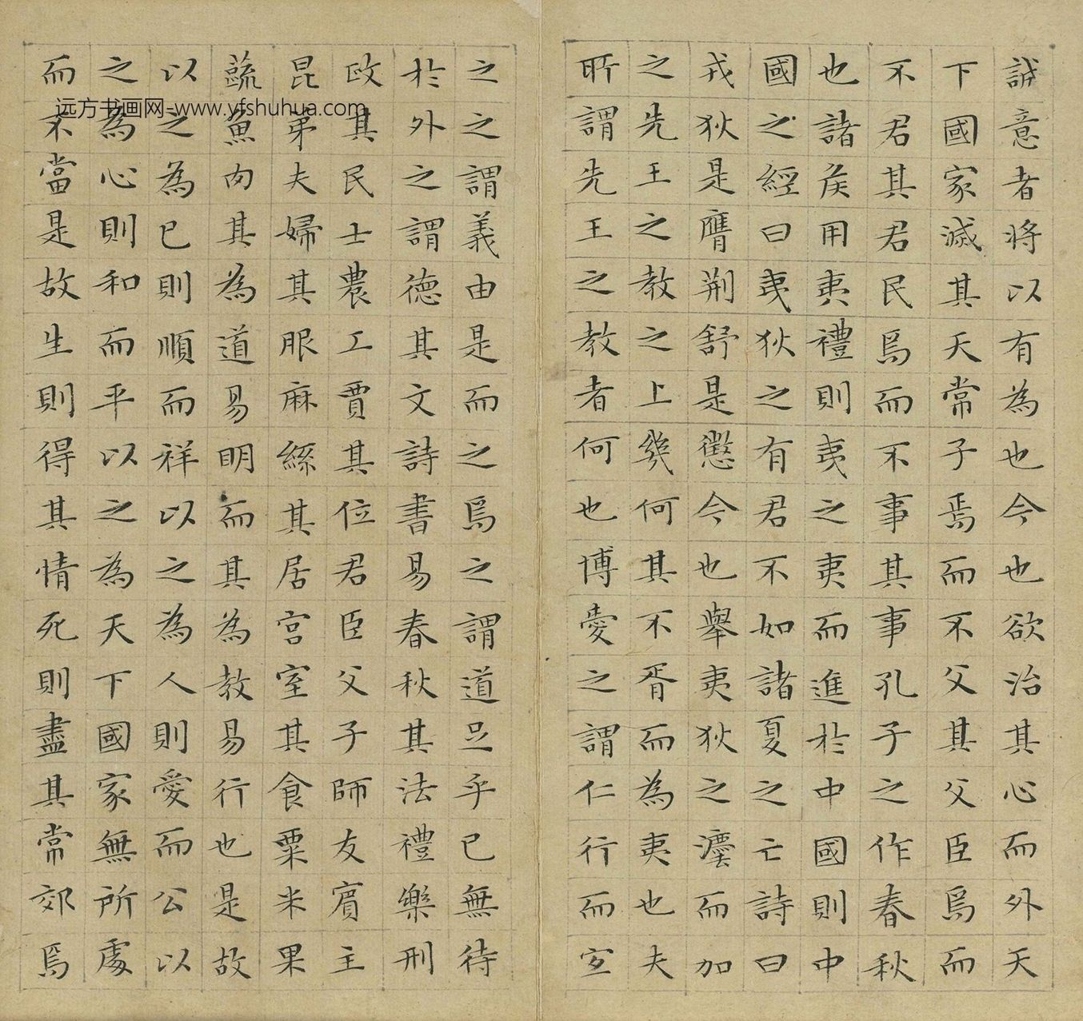 誠意者將以有為也今也欲治其心而外天
下國家滅其天常子焉而不父其父臣焉而
不君其君民焉而不事其事孔子之作春秋
也諸矦用夷禮則夷之夷而進於中國則中
國之經曰夷狄之有君不如諸夏之亡詩曰
戎狄是膺荆舒是懲今也舉夷狄之灋而加
之先王之教之上幾何其不胥而為夷也夫
所謂先王之教者何也博愛之謂仁行而宜
之之謂義由是而之焉之謂道足乎已無待
於外之謂德其文詩書易春秋其法禮樂刑
政其民士農工賈其位君臣父子師友賓主
昆弟夫婦其服麻絲其居宮室其食粟米果
蔬魚肉其為道易明而其為教易行也是故
以之為已則順而祥以之為人則愛而公以
之為心則和而平以之為天下國家無所處
而不當是故生則得其情死則盡其常郊焉
远方书画网-www.yfshuhua.com